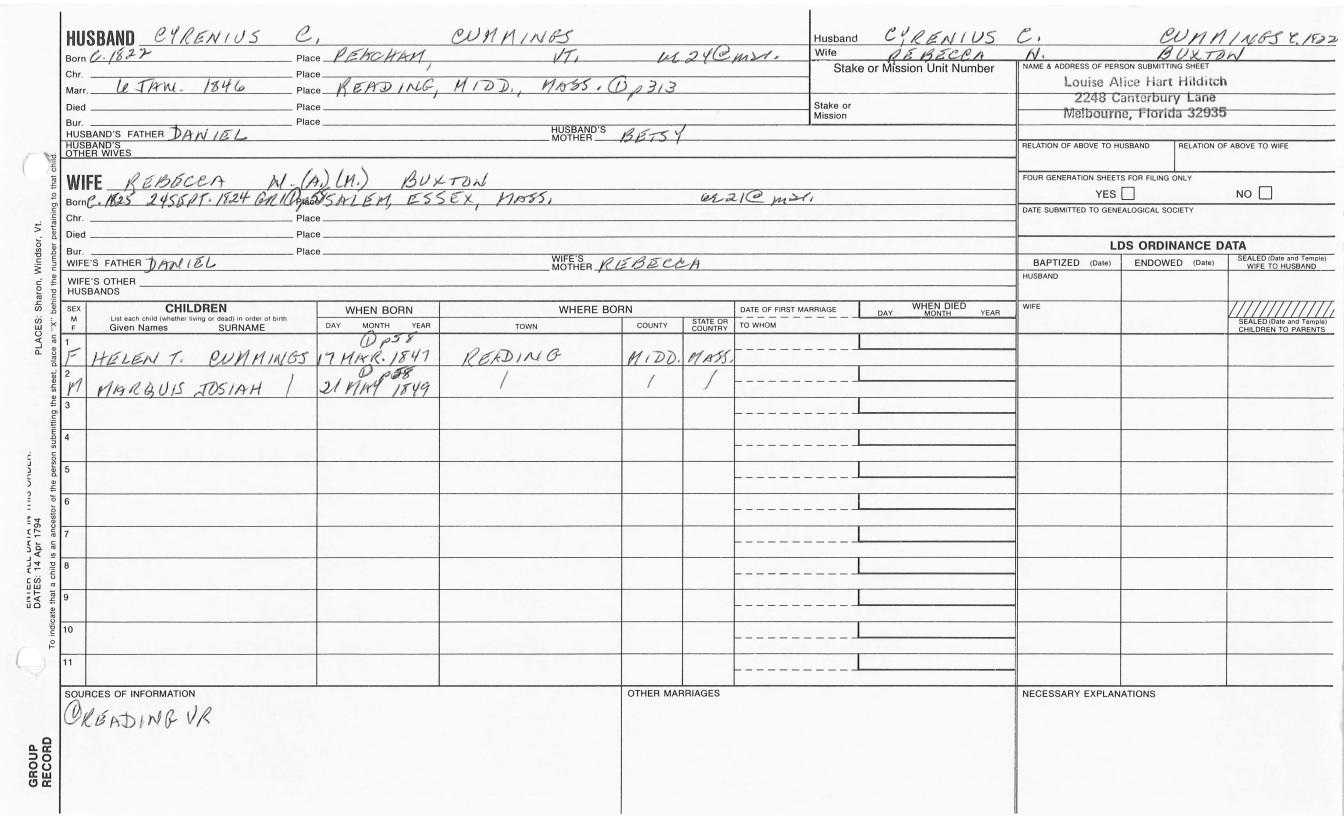 HUSBAND CYRENIUS C. CUMMINGS
Born C. 1822 Place PEACHAM, VT. 24@mar.
Chr. Place
Marr. 6 JAN. 1846 Place READING, MIDD., MASS. ① p313
Died Place
Bur. Place
HUSBAND'S FATHER DANIEL HUSBAND'S MOTHER BETSY
HUSBAND'S OTHER WIVES
WIFE REBECCA N. (A) (M.) BUXTON
Born C. 1825 24 SEPT. 1824 Place SALEM, ESSEX, MASS. 21@ mar.
Chr. Place
Died Place
Bur. Place
WIFE'S FATHER DANIEL WIFE'S MOTHER REBECCA
WIFE'S OTHER HUSBANDS
Husband CYRENIUS C. CUMMINGS C. 1822
Wife REBECCA N. BUXTON
Stake or Mission Unit Number
Stake or Mission
NAME & ADDRESS OF PERSON SUBMITTING SHEET
Louise Alice Hart Hilditch
2248 Canterbury Lane
Melbourne, Florida 32935
RELATION OF ABOVE TO HUSBAND RELATION OF ABOVE TO WIFE
FOUR GENERATION SHEETS FOR FILING ONLY
YES NO
DATE SUBMITTED TO GENEALOGICAL SOCIETY
LDS ORDINANCE DATA
BAPTIZED (Date) ENDOWED (Date) SEALED (Date and Temple) WIFE TO HUSBAND
HUSBAND
WIFE
SEALED (Date and Temple) CHILDREN TO PARENTS
SEX M F CHILDREN WHEN BORN WHERE BORN DATE OF FIRST MARRIAGE WHEN DIED
List each child (whether living or dead) in order of birth
Given Names SURNAME DAY MONTH YEAR TOWN COUNTY STATE OR COUNTRY TO WHOM DAY MONTH YEAR
1 ① p58
F HELEN T. CUMMINGS 17 MAR. 1847 READING MIDD. MASS.
2 ① p58
M MARQUIS JOSIAH / 21 MAY 1849 / / /
3
4
5
6
7
8
9
10
11
SOURCES OF INFORMATION OTHER MARRIAGES NECESSARY EXPLANATIONS
① READING VR
GROUP RECORD
ENTER ALL DATA IN THIS ORDER:
DATES: 14 Apr 1794
PLACES: Sharon, Windsor, Vt.
To indicate that a child is an ancestor of the person submitting the sheet, place an "X" behind the number pertaining to that child.